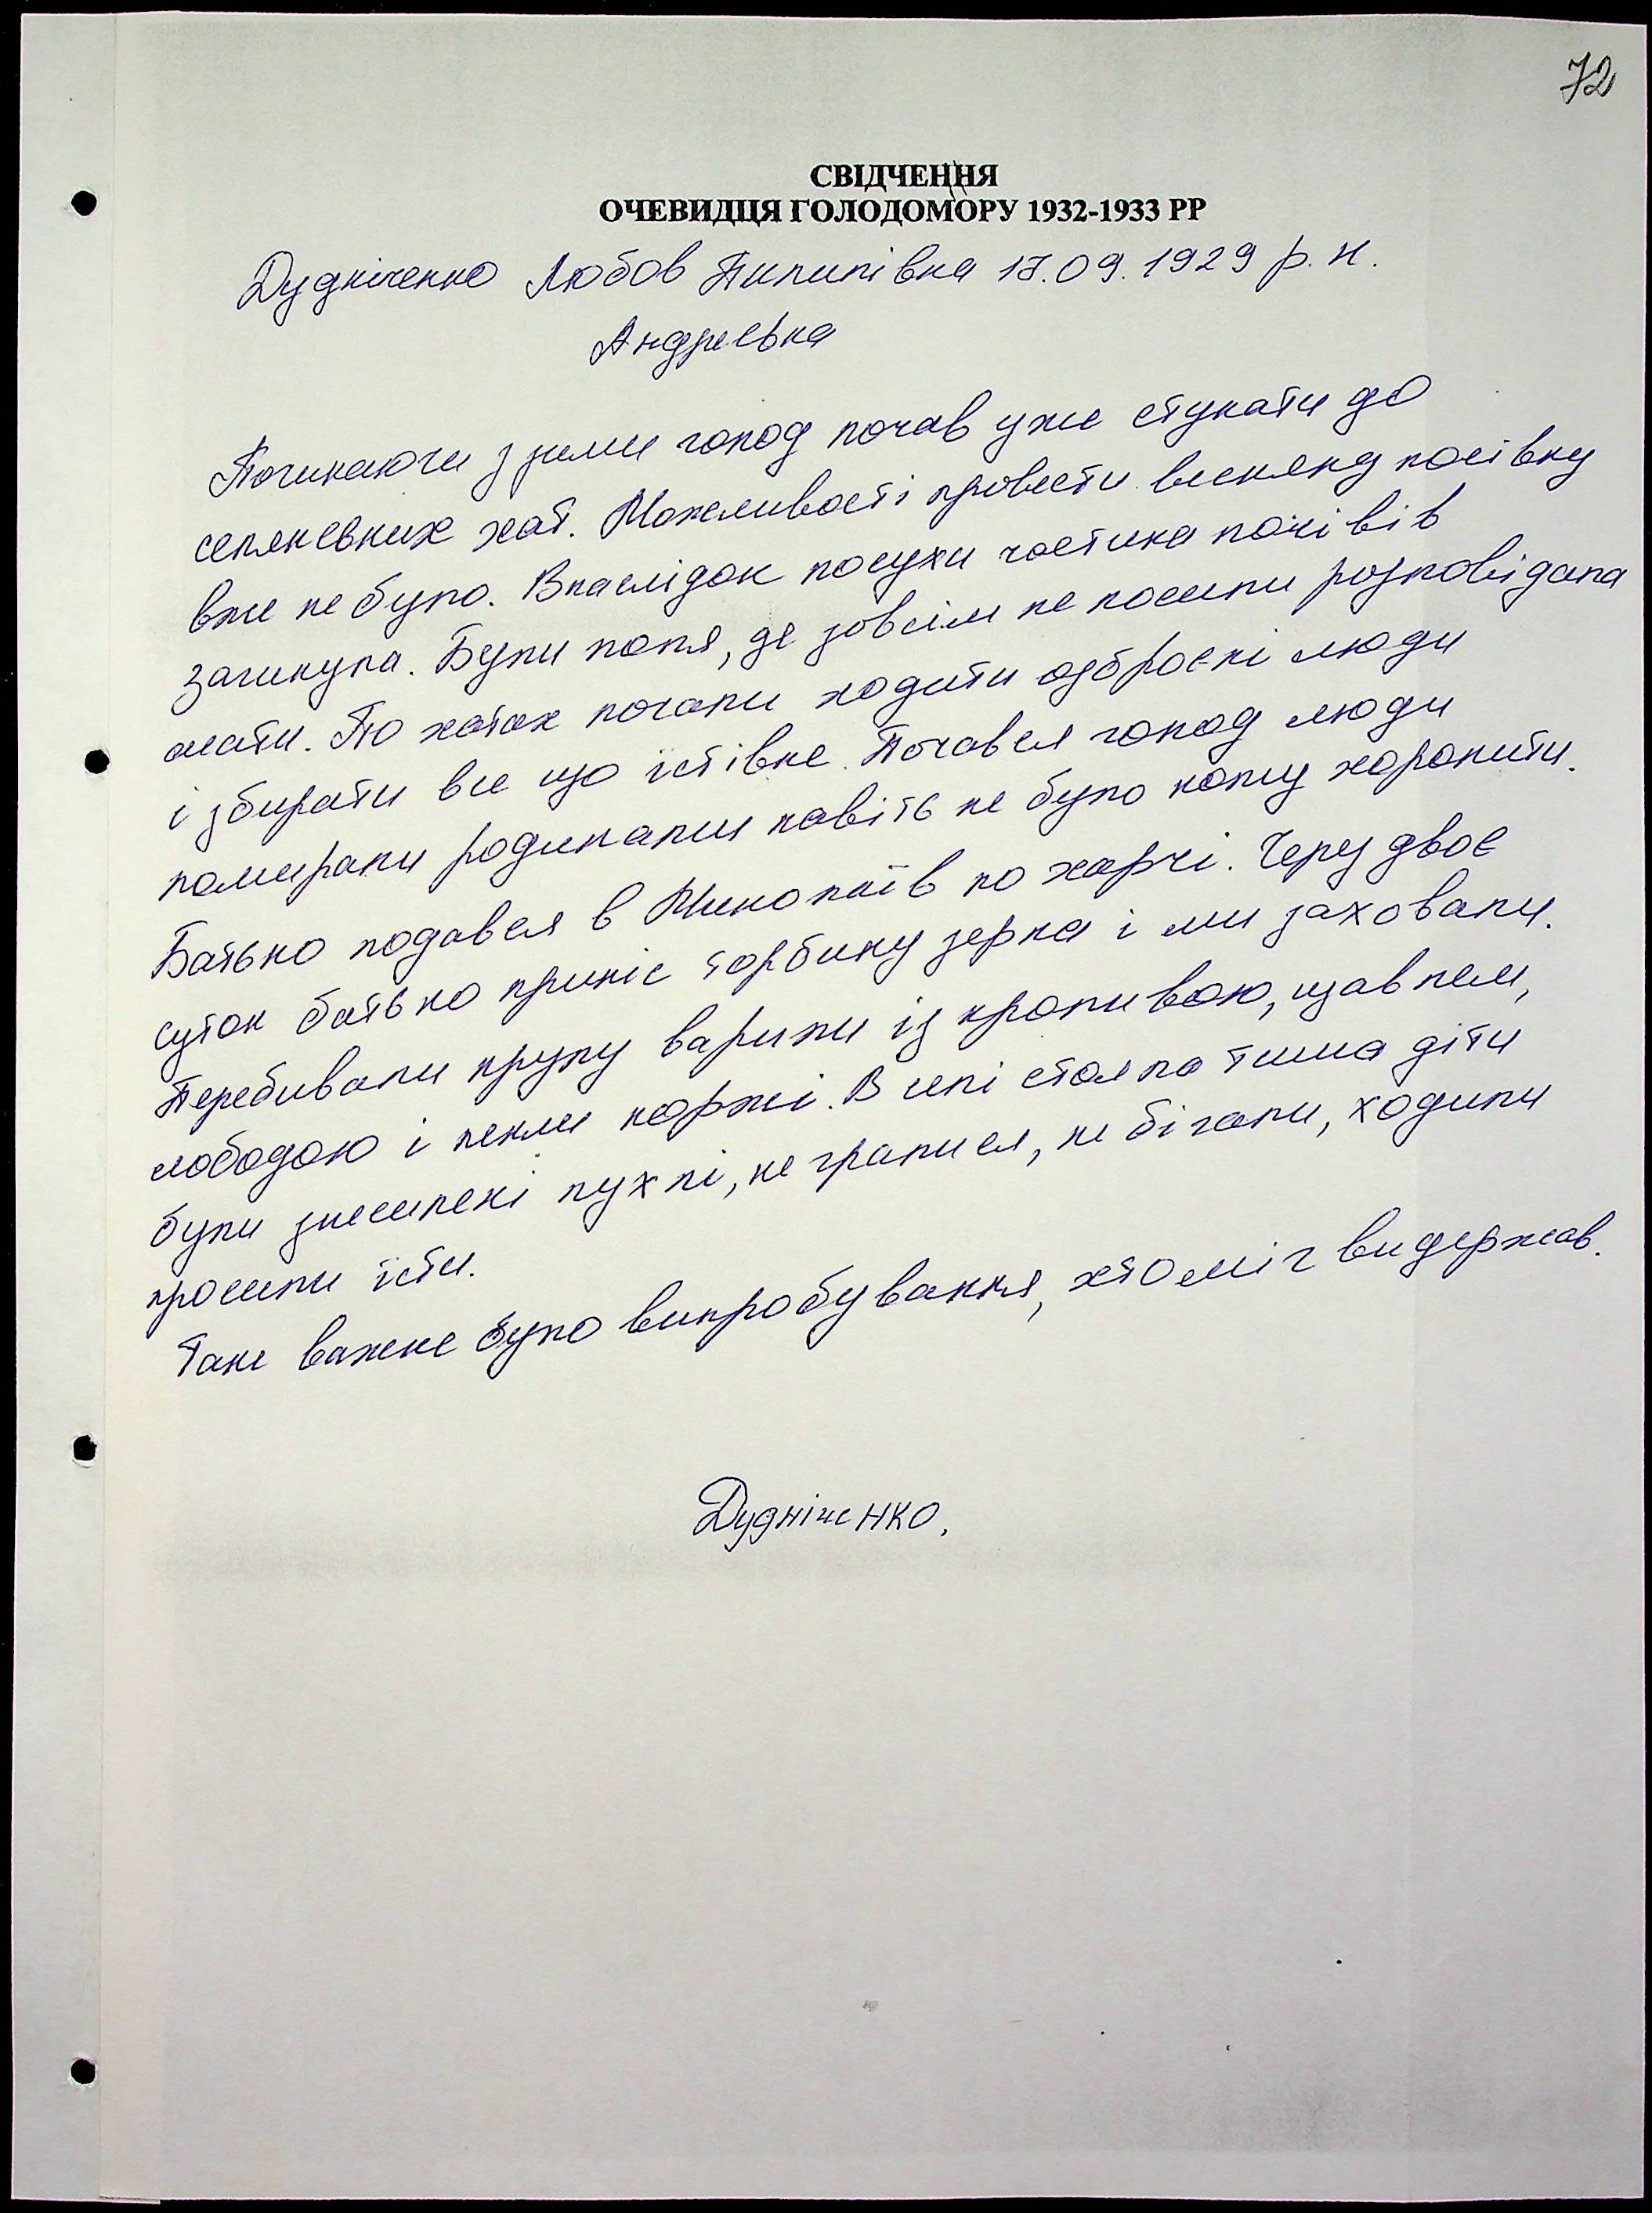 72
СВІДЧЕННЯ
ОЧЕВИДЦЯ ГОЛОДОМОРУ 1932-1933 РР
Дудніченко Любов Пилипівна 17.09.1929 р. н.
Андріевка
Починаючи з зими голод почав уже стукати до
селяневних хат. Можливості провести весняну посівну
вже не було. Внаслідок посухи частина посівів
загинула. Були поля, де зовсім не носили розповідала
мати. По хатах почали ходити озброєні люди
і збирати все що їстівне. Почався голод люди
помирали родинами навіть не було кому хоронити.
Батько подався в Миколаїв по харчі. Через двоє
суток батько приніс торбину зерна і ми заховали.
Перебивали крупу варили із кропивою, щавлем,
лободою і пекли коржі. В селі стояла тиша діти
були знесилені пухлі, не грались, не бігали, ходили
просили їсти.
Таке важке було випробування, хто міг видержав.
Дудніченко.